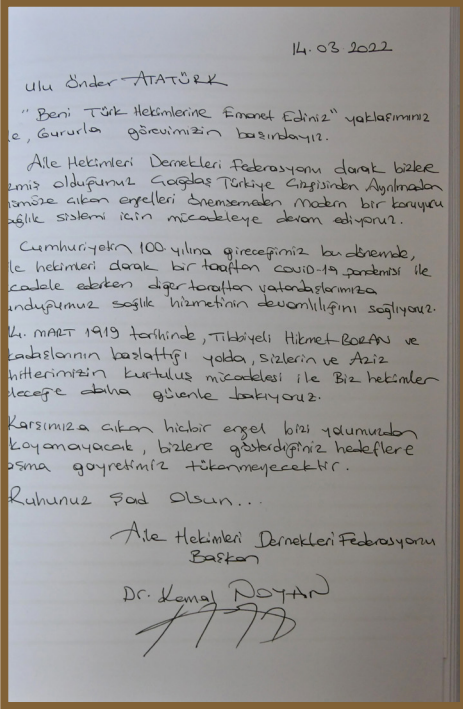 14.03.2022
ulu Önder ATATÜRK
"Beni Türk Hekimlerine Emanet Ediniz" yaklaşımınız
e, Gururla görevimizin başındayız.
Aile Hekimleri Dernekleri Federasyonu olarak bizlere
zmiş olduğunuz Çağdaş Türkiye Çizgisinden Ayrılmadan
ımıza çıkan engelleri önemsemeden modern bir koruyucu
ağlık sistemi için mücadeleye devam ediyoruz.
Cumhuriyetin 100. yılına gireceğimiz bu dönemde,
le hekimleri olarak bir taraftan covid-19 pandemisi ile
cadele ederken diğer taraftan vatandaşlarımıza
unduğumuz sağlık hizmetinin devamlılığını sağlıyoruz.
14. MART 1919 tarihinde, Tıbbiyeli Hikmet BORAN ve
kadaşlarının başlattığı yolda, sizlerin ve Aziz
hitlerimizin kurtuluş mücadelesi ile Biz hekimler
leceğe daha güvenle bakıyoruz.
Karşımıza çıkan hiçbir engel bizi yolumuzdan
koyamayacak, bizlere gösterdiğiniz hedeflere
aşma gayretimiz tükenmeyecektir.
Ruhunuz Şad Olsun...
Aile Hekimleri Dernekleri Federasyonu
Başkan
Dr. Kemal NOYAN